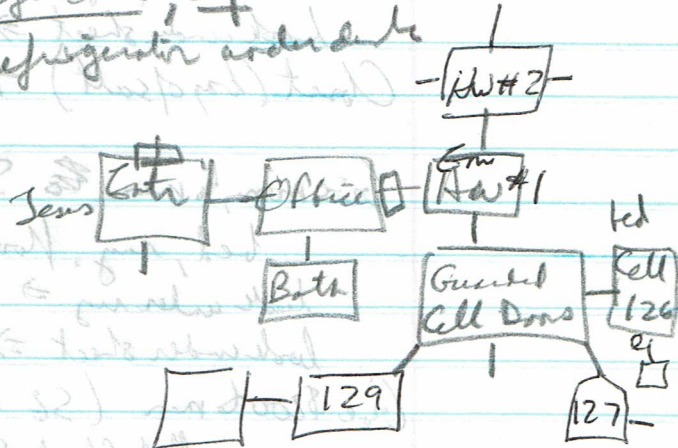 refrigerator under desk
HW #2
Entr
Office
HW #1
Bath
Guarded
Cell Doors
red
Cell
126
129
127